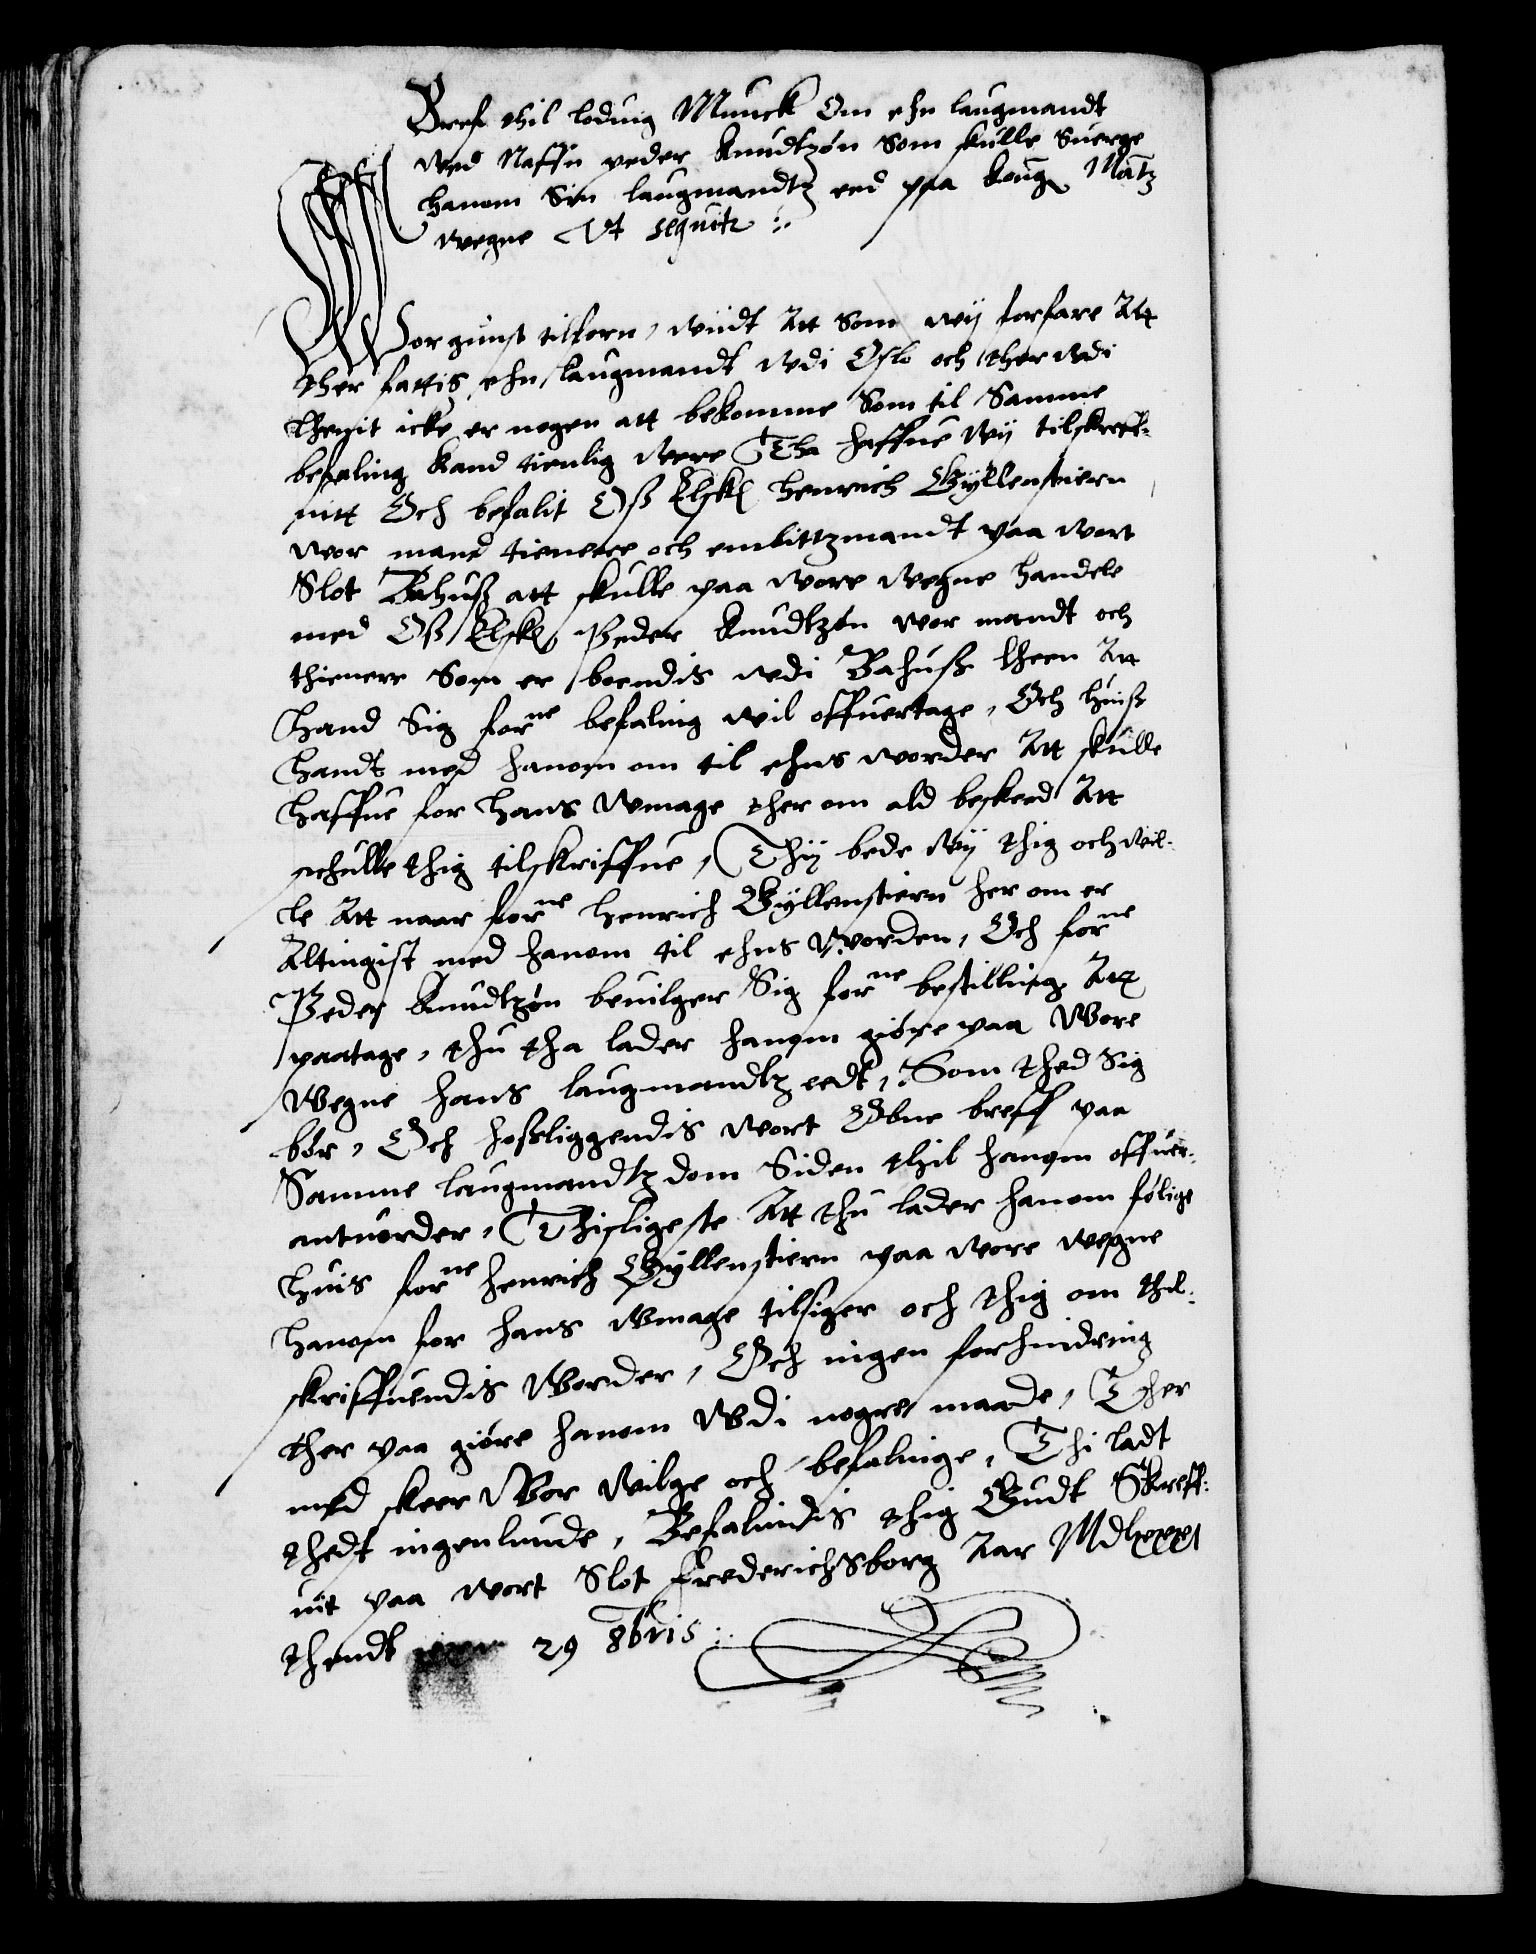 Bref thil loduig Munck Om ehn laugmandt
wed Naffn peder Knudtzøn Som skulle Suerge
hanom Sin laugmandtz eed paa kong Matz
wegne Vt sequitr :.
Wor gunst tilforn, wiidt Att Som wij forfare Att
ther fattis ehn laugmandt wdi Oslo och ther wdi
icke er nogen att bekomme Som til Samme
befaling kand tienlig were Tha haffue Wij tilskreff-
uitt Och befalit Oß Elsk henrich Gÿllenstiern
wor mand tienere och embittzmandt paa wort
Slot Bahuß att skulle paa wore wegne handele
med Oß Elsk Peder Knudtzøn wor mandt och
thienere Som er boendis wdi Bahuß lheen Att
hand Sig forne befaling wil offuertage, Och huiß
handt med hanom om til ehns worder Att skulle
haffue for hans Wmage ther om ald beskeed Att
schulle thig tilskriffue, Thij bede wij thig och wil-
le Att naar forne henrich Gÿllenstiern her om er
Altingist med hanom til ehns worden, Och forne
Peder Knudtzøn beuilger Sig forne bestilling Att
paatage, thu tha lader hanom giøre paa Wore
Wegne hans laugmandtz eedt, Som thed Sig
bør, Och hosliggendis wort Obne breff paa
Samme laugmandtz dom Siden thil hanom offuer-
antuorder, Thisligeste Att thu lader hanom følige
huis forne henrich Gÿllenstiern paa wore wegne
hanom for hans Wmage tilsiger och thig om thil-
skriffuendis Worder, Och ingen forhindring
ther paa giøre hanom Wdi nogre maade, Ther
med skeer Wor Wilge och befalinge, Thi ladt
thedt ingenlunde, Befalindis thig Gudt Skreff-
uit paa wort Slot Frederichsborg Aar Mdlxxxi
thendt 29 8bris :.